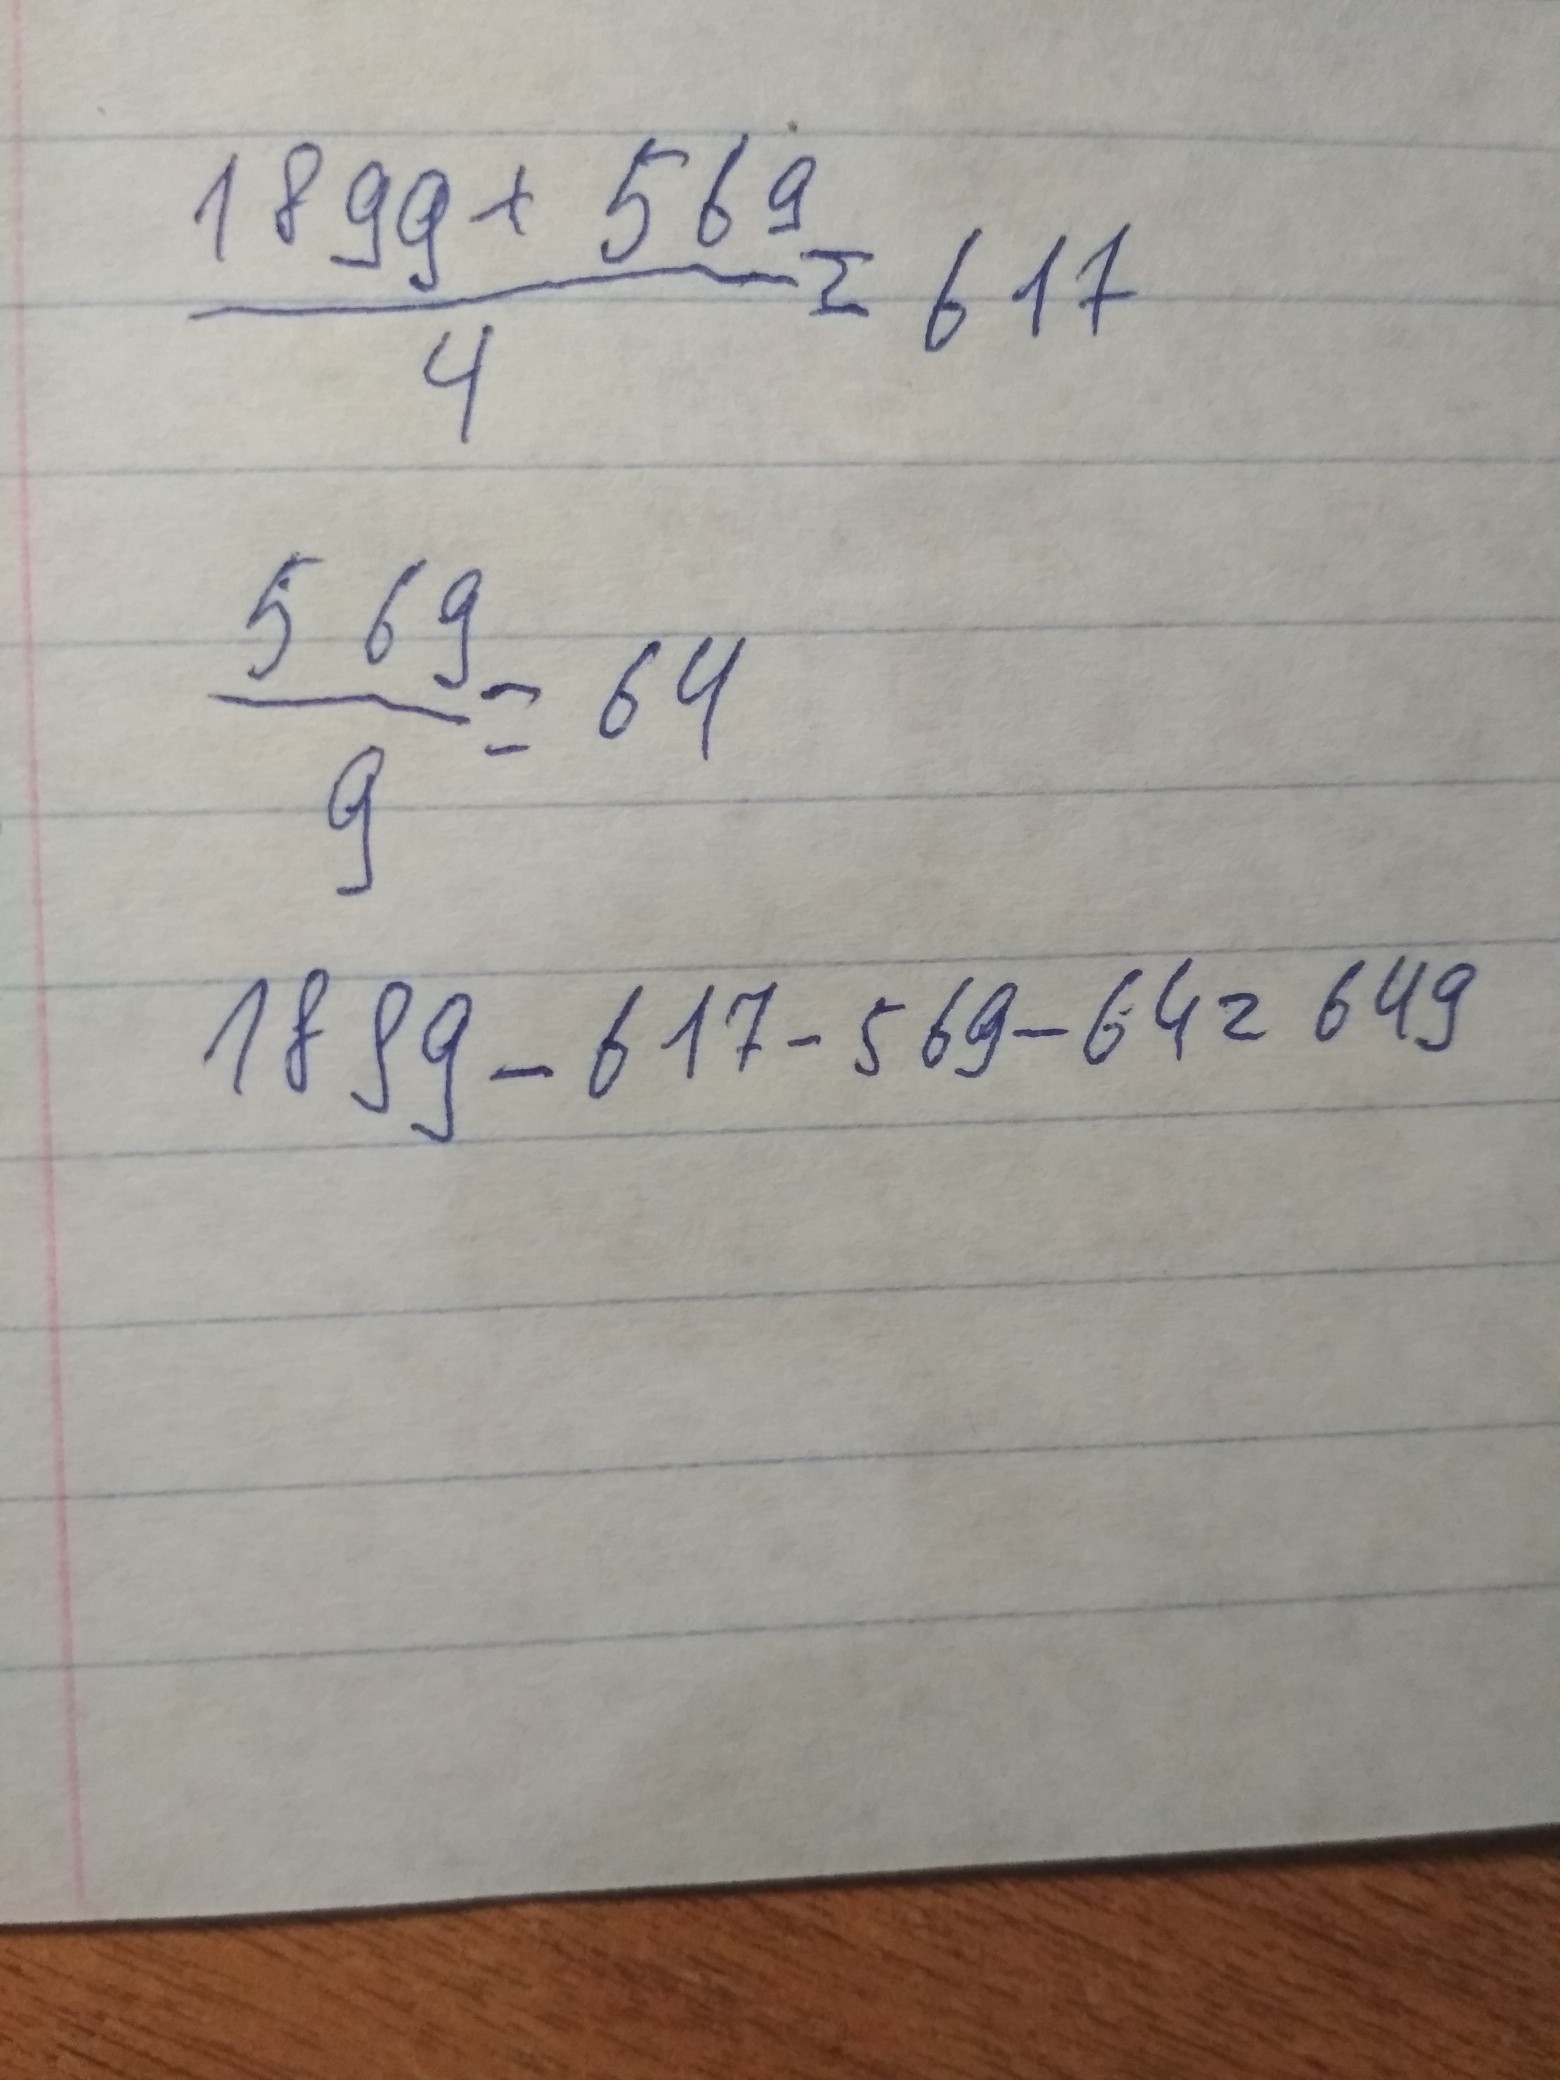 1899 + 569
4
= 617
569
9
= 64
1899 - 617 - 569 - 64 = 649